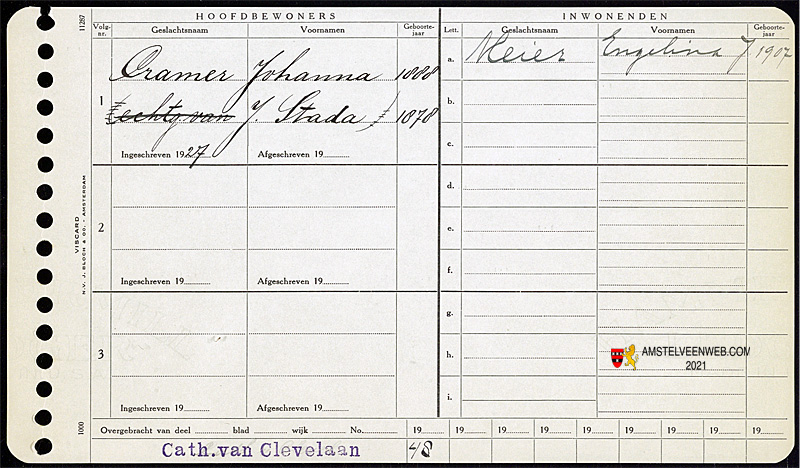 HOOFDBEWONERS
Volg-nr. Geslachtsnaam Voornamen Geboorte-jaar
1 Cramer Johanna 1888
(echtg. van J. Stada,) 1878
Ingeschreven 1927 Afgeschreven 19
2
Ingeschreven 19 Afgeschreven 19
3
Ingeschreven 19 Afgeschreven 19
INWONENDEN
Lett. Geslachtsnaam Voornamen Geboorte-jaar
a. Meier Engelina J 1907
b.
c.
d.
e.
f.
g.
h.
i.
Overgebracht van deel blad wijk No. 19 19 19 19 19 19 19 19 19
Cath.van Clevelaan 48
11287
VISCARD
N.V. J. BLOCH & CO. - AMSTERDAM
1000
AMSTELVEENWEB.COM
2021